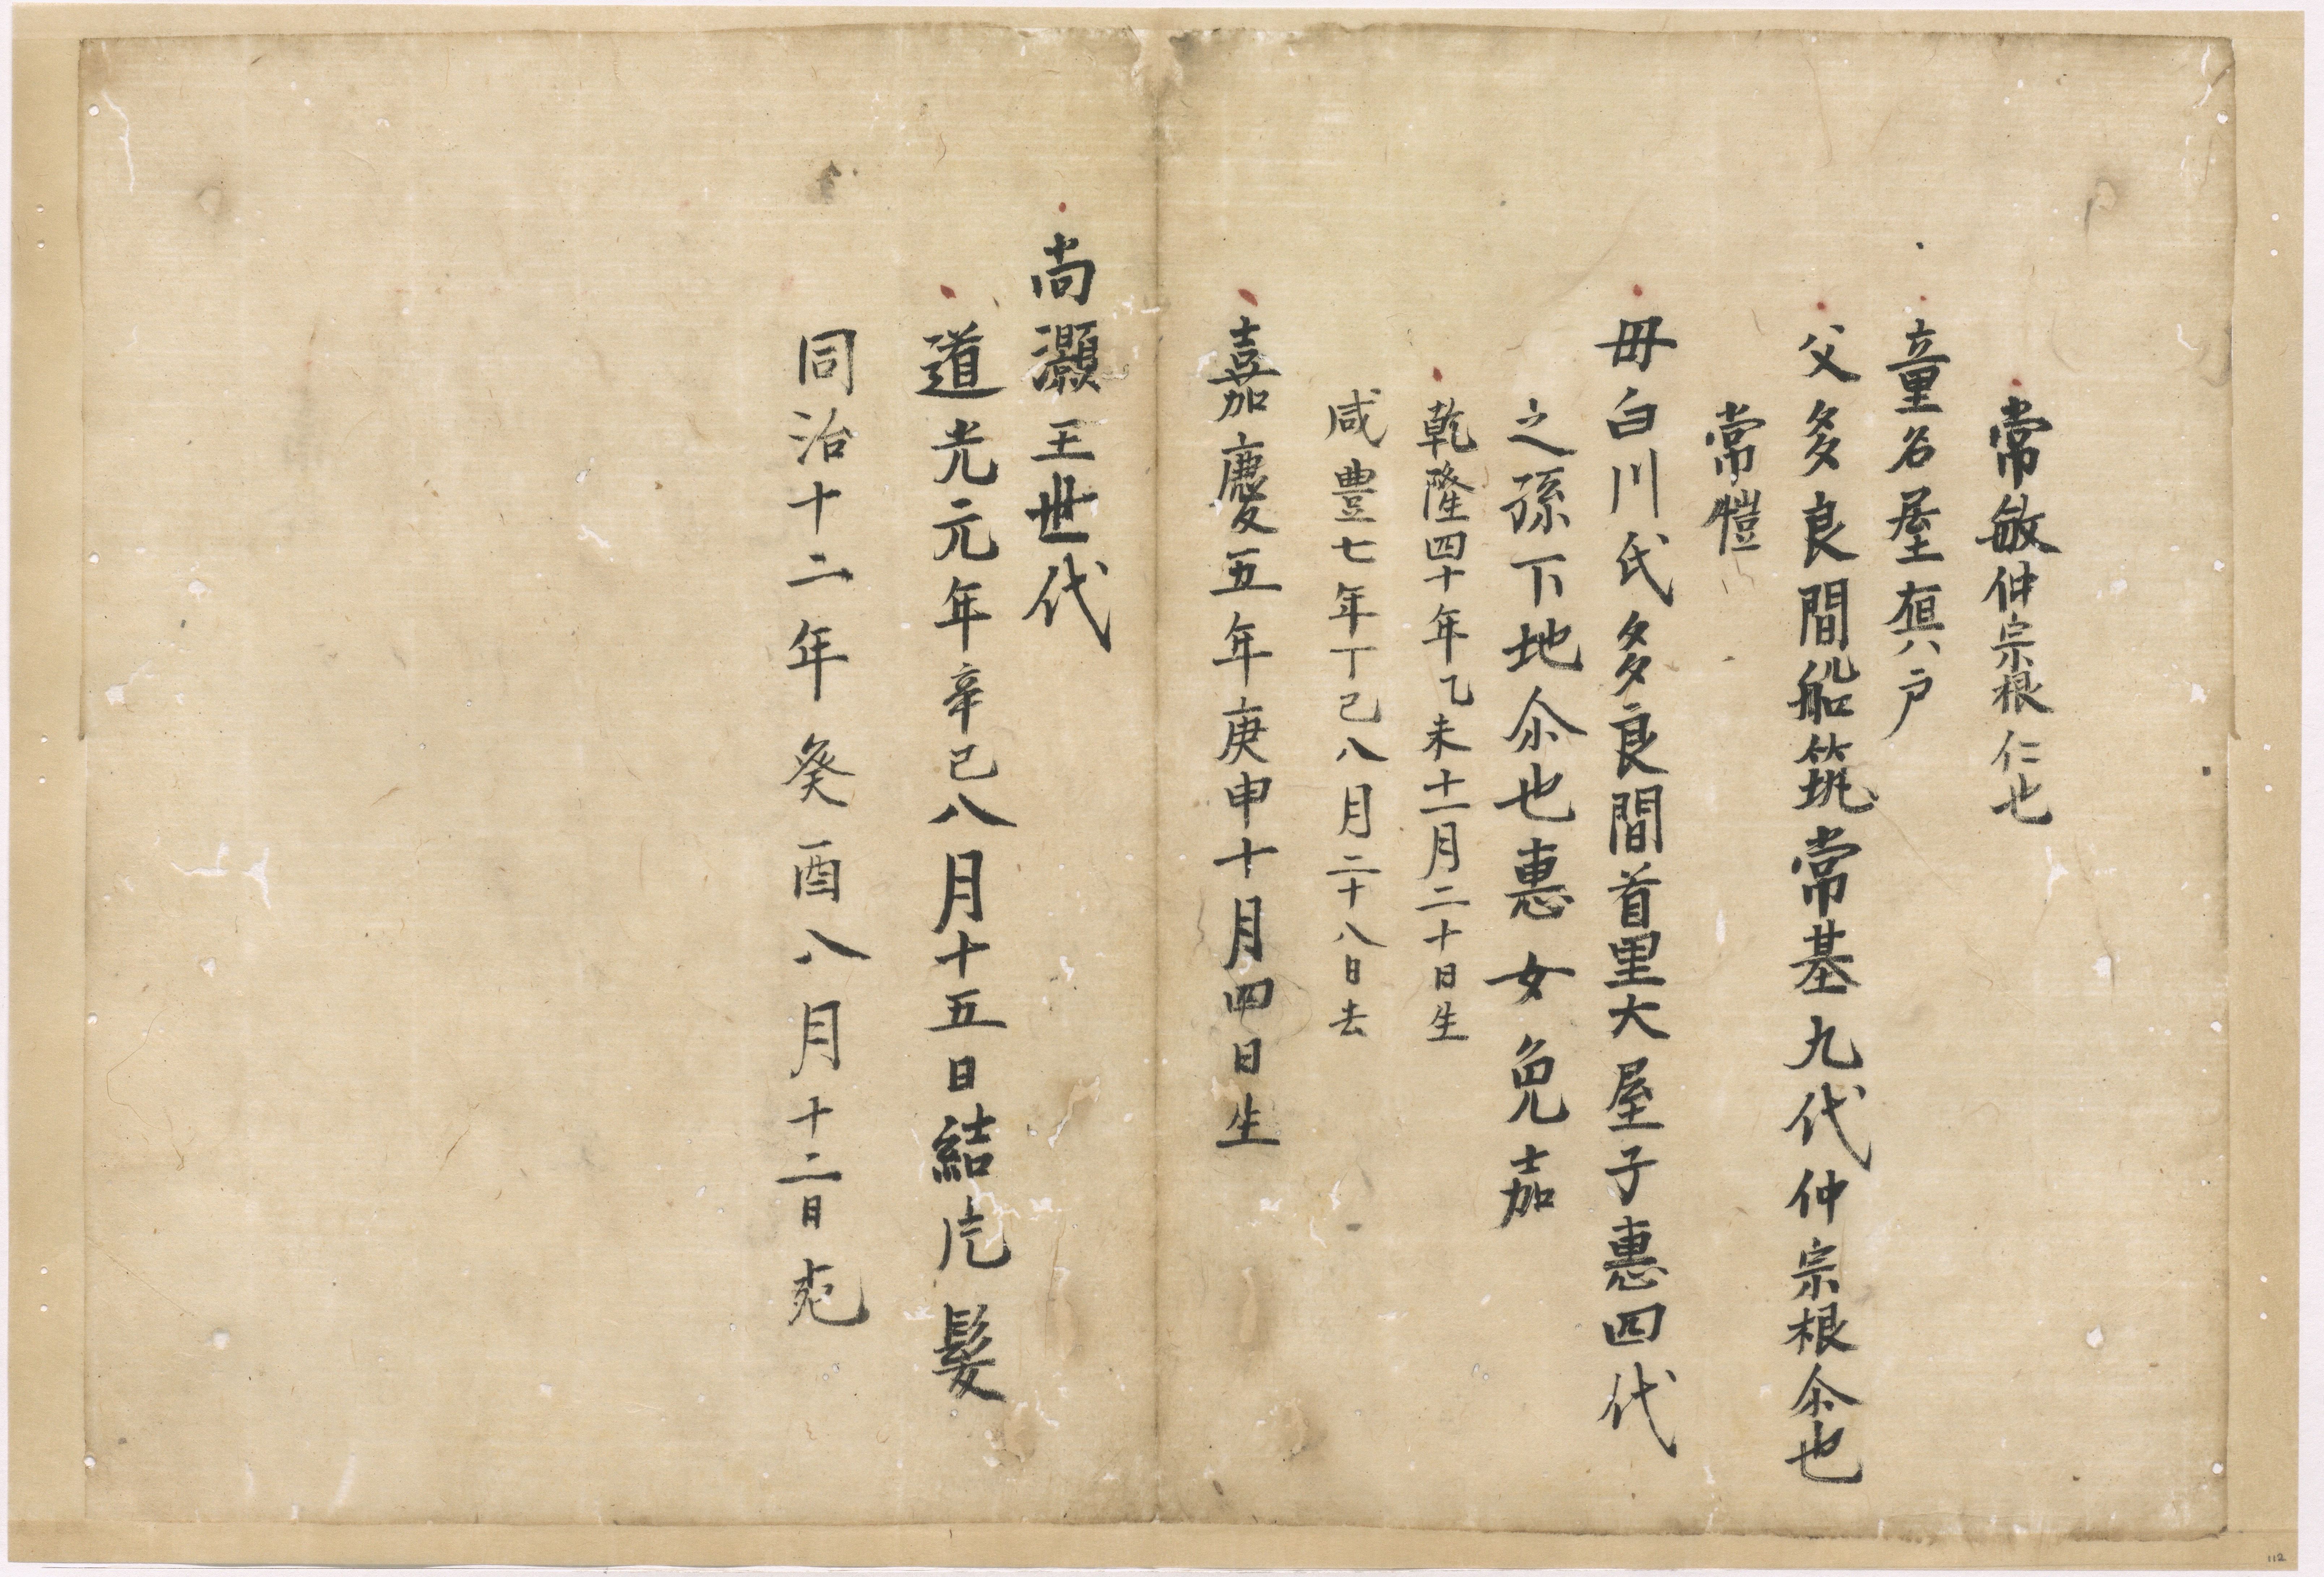 常敏仲宗根仁也
童名屋真戸
父多良間船筑常基九代仲宗根尒也
常愷
毋白川氏多良間首里大屋子惠四代
之孫下地尒也惠女免嘉
乾隆四十年乙未十一月二十日生
咸豊七年丁己八月二十八日去
嘉慶五年庚申十月四日生
尚灝王世代
道光元年辛己八月十五日結片髮
同治十二年癸酉八月十二日死
112